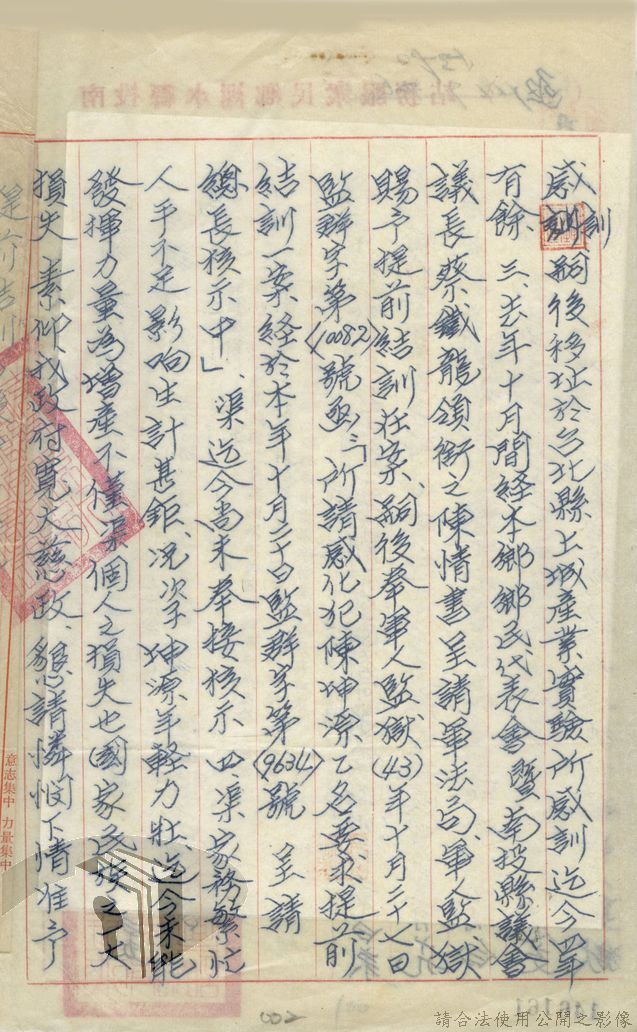 感訓嗣後移址於台北縣土城產業實驗所感訓迄今四年
有餘、三、去年十月間経本鄉鄉民代表會暨南投縣議會
議長蔡鐵龍領銜之陳情書呈請軍法局、軍人監獄
賜予提前結訓在案、嗣後奉軍人監獄(43)年十月二十七日
監群字第(10082)號函:「所請感化犯陳坤源乙名要求提前
結訓一案、経於本年十月二十日監群字第(9634)號 呈請
總長核示中」、渠迄今尚未奉接核示 四、渠家務繁忙
人手不足影响生計甚鉅、况次子坤源年輕力壯、迄今未能
發揮力量為增產不僅渠個人之損失也國家民族之大
損失 素仰我政府寬大慈政、懇請憐悯下情准予
意志集中 力量集中
南投縣水里鄉民眾服務站
002
請合法使用公開之影像